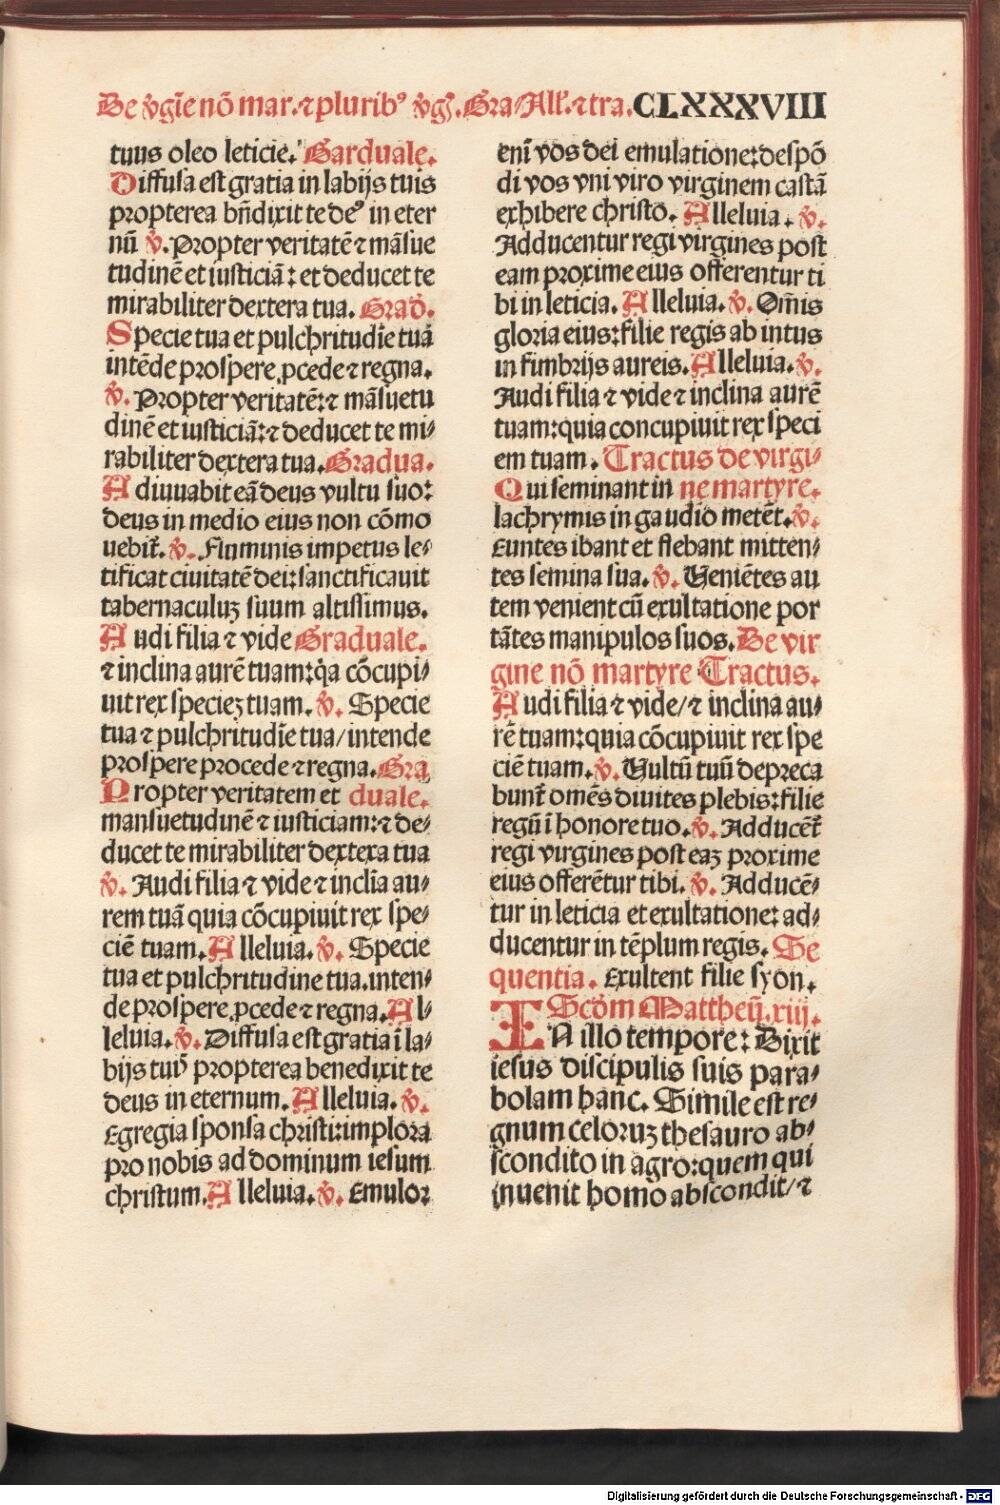 De v̄gīe nō mar. ⁊ pluribꝰ v̄gꝭ. Gra Allꝭ. ⁊ tra. CLXXXVIII
tuus oleo leticie. Garduale.
Diffusa est gratia in labijs tuis
propterea bn̄dixit te deꝰ in eter
nū ℣. Propter veritatē ⁊ māsue
tudinē et iusticiā: et deducet te
mirabiliter dextera tua. Grad̄.
Specie tua et pulchritudīe tua
intēde prospere ꝓcede ⁊ regna.
℣. Propter veritatē: ⁊ māsuetu
dinē et iusticiā: ⁊ deducet te mi⸗
rabiliter dextera tua. Gradua.
Adiuuabit eā deus vultu suo:
deus in medio eius non cōmo
uebit̄. ℣. Fluminis impetus le⸗
tificat ciuitatē dei: sanctificauit
tabernaculuꝫ suum altissimus.
Audi filia ⁊ vide Graduale.
⁊ inclina aurē tuam: q̄a cōcupi⸗
uit rex specieꝫ tuam. ℣. Specie
tua ⁊ pulchritudīe tua/ intende
prospere procede ⁊ regna. Gra
Propter veritatem et duale.
mansuetudinē ⁊ iusticiam: ⁊ de⸗
ducet te mirabiliter dextexa tua
℣. Audi filia ⁊ vide ⁊ inclīa au⸗
rem tuā quia cōcupiuit rex spe⸗
ciē tuam. Alleluia. ℣. Specie
tua et pulchritudine tua. inten⸗
de prospere, ꝓcede ⁊ regna. Al⸗
leluia. ℣. Diffusa est gratia ī la⸗
bijs tuis propterea benedixit te
deus in eternum. Alleluia. ℣.
Egregia sponsa christi: implora
pro nobis ad dominum iesum
christum. Alleluia. ℣. Emulor
enī vos dei emulatione: despō
di vos vni viro virginem castā
exhibere christo. Alleluia. ℣.
Adducentur regi virgines post
eam proxime eius offerentur ti
bi in leticia. Alleluia. ℣. Om̄is
gloria eius: filie regis ab intus
in fimbrijs aureis. Alleluia. ℣.
Audi filia ⁊ vide ⁊ inclina aurē
tuam: quia concupiuit rex speci
em tuam. Tractus de virgi⸗
Qui seminant in ne martyre.
lachrymis in gaudio metēt. ℣.
Euntes ibant et flebant mitten⸗
tes semina sua. ℣. Veniētes au
tem venient cū exultatione por
tātes manipulos suos. De vir
gine nō martyre Tractus.
Audi filia ⁊ vide/ ⁊ inclina au⸗
rē tuam: quia cōcupiuit rex spe
ciē tuam. ℣. Vultū tuū depreca
bunt̄ omēs diuites plebis: filie
regū ī honore tuo. ℣. Adducēt̄
regi virgines post eaꝫ proxime
eius offerētur tibi. ℣. Adducē⸗
tur in leticia et exultatione: ad⸗
ducentur in tēplum regis. Se
quentia. Exultent filie syon.
Scd̄m Mattheū. xiij.
IN illo tempore: Dixit
iesus discipulis suis para⸗
bolam hanc. Simile est re⸗
gnum celoruꝫ thesauro ab⸗
scondito in agro: quem qui
inuenit homo abscondit/ ⁊
Digitalisierung gefördert durch die Deutsche Forschungsgemeinschaft - DFG